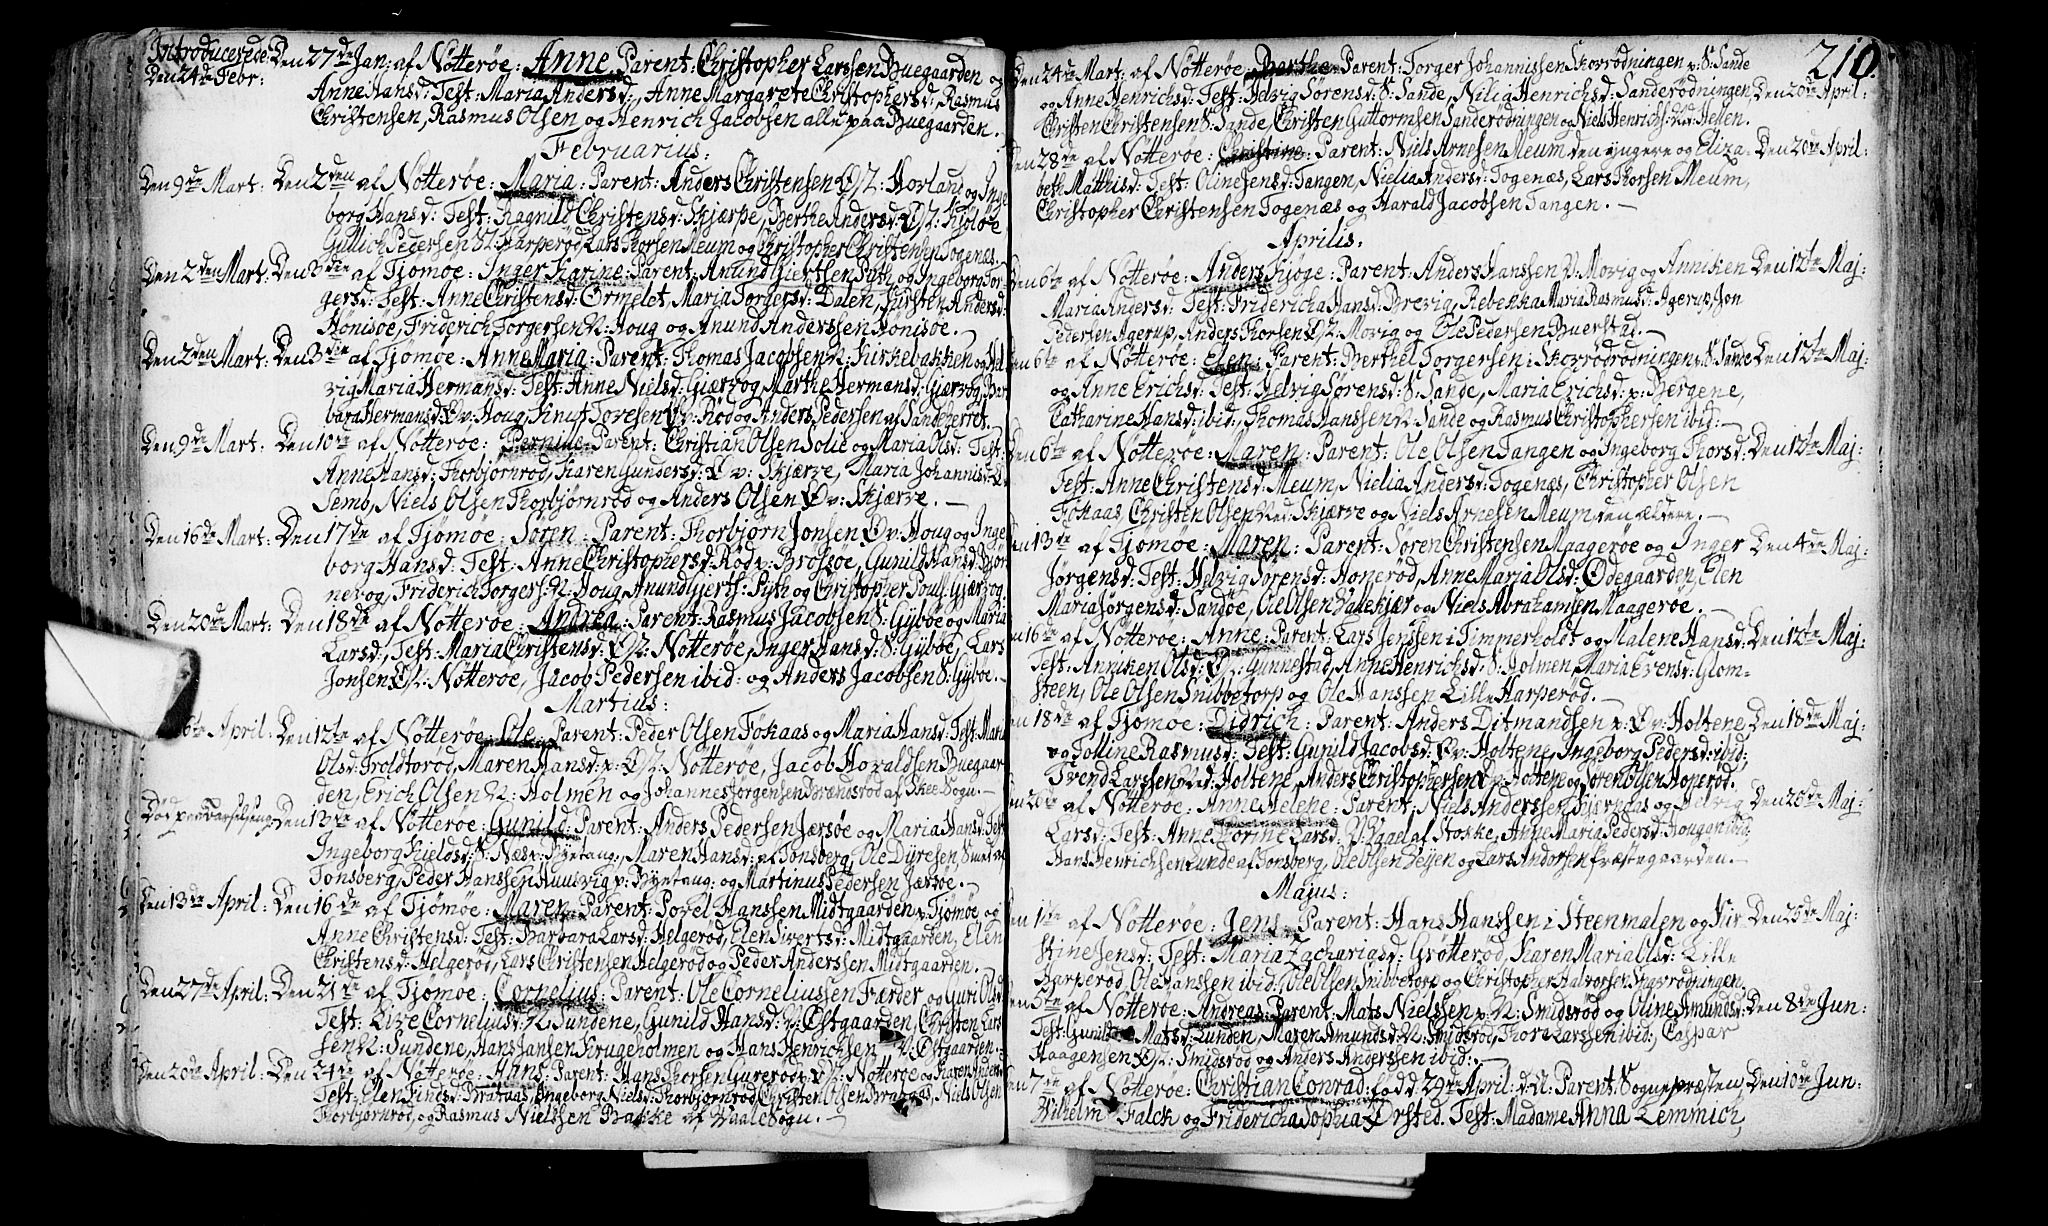 Introducerede: Den 27de Jan: af Nøtterøe: Anne Parent: Christopher Larssen Buegaarden og
Den 24de Febr:
Anne Hansd: Test: Maria Andersd:, Anne Margarete Christophersd: Rasmus
Christensen, Rasmus Olsen og Henrich Jacobsen alle paa Buegaarden.
Februarius:
Den 9de Mart: Den 2den af Nøtterøe: Maria: Parent: Anders Christensen Ø/2: Horland og Inge
borg Hansd: Test: Ragnild Christensd: Skjærpe, Berthe Andersd: Ø/2: Kjøløe
Gullich Pedersen N: Harperød, Lars Thorsen Meum og Christopher Christensen Togenæs.
Den 2den Mart: Den 3die af Tjømøe: Inger Karine: Parent: Anund Giertsen Pyth og Ingeborg Tor
gersd: Test: Anne Christensd: Ormelet, Maria Torgersd: Dalen, Kirsten Andersd:
Hønisøe, Friderich Torgersen N: Houg og Anund Anderssen Hønisøe.
Den 2den Mart: Den 3die af Tjømøe: Anne Maria: Parent: Thomas Jacobsen N: Kirkebakken og Hæ
vig Maria Hermansd: Test: Anne Nielsd: Giærvog, Marthe Hermansd: Giærvog, Bar
bara Hermansd: Øv: Houg, Knut Toresen Øv: Rød og Anders Pedersen af Sandeherret.
Den 9de Mart: Den 10de af Nøtterøe: Pernille: Parent: Christian Olsen Jolie og Maria Olsd: Test:
Anne Hansd: Thorbjørnrød, Karen Gundersd: Øv: Skjærve, Maria Johannisd:
Semb, Niels Olsen Thorbjørnrød og Anders Olsen Øv: Skjærve.
Den 16de Mart: Den 17de af Tjømøe: Søren: Parent: Thorbjørn Jonsen Øv: Houg og Inge
borg Hansd: Test: Anne Christophersd: Rød v: Brøtsøe, Gunild Hansd: Bjør
nevog, Friderich Torgers: N: Houg, Anund Gierts: Pyth og Christopher Pouls: Giærvog
Den 20de Mart: Den 18de af Nøtterøe: Andrea: Parent: Rasmus Jacobsen S: Gybøe og Maria
Larsd:, Test: Maria Christensd: Ø/2: Nøtterøe, Inger Hansd: S: Gybøe, Lars
Jonsen Ø/2: Nøtterøe, Jacob Pedersen ibid: og Anders Jacobsen S: Gybøe.
Martius:
6te April: Den 12te af Nøtterøe: Ole: Parent: Peder Olsen Føkaas og Maria Hansd: Test: Maria
Olsd: Troldtorød, Maren Hansd: v: Ø/2: Nøtterøe, Jacob Haraldsen Buegaar
den, Erich Olsen N: Holmen og Johannes Jørgensen Brændsrød af Skee Sogn.
Død paa Barselseng. Den 13de af Nøtterøe: Gunild: Parent: Anders Pedersen Jærsøe og Maria Hansd: Test:
Ingeborg Kieldsd: S: Næs v: Byetang:, Maren Hansd: af Tønsberg, Ole Dyresen Smed af
Tønsberg, Peder Hanssen Huusvig v: Byetang: og Martinus Pedersen Jærsøe.
Den 13de April: Den 16de af Tjømøe: Maren: Parent: Povel Hanssen Midtgaarden v: Tjømøe og
Anne Christensd: Test: Barbara Larsd: Helgerød, Elen Sivertsd: Midtgaarden, Elen
Christensd: Helgerød, Lars Christensen Helgerød og Peder Anderssen Midtgaarden.
Den 27de April: Den 21de af Tjømøe: Cornelius: Parent: Ole Corneliussen Færder og Guri Olsd:
Test: Live Cornelius: N: Sundene, Gunild Hansd: N: Østgaarden, Christen Lars
sen N: Sundene, Hans Jansen Krugeholmen og Hans Henrichsen N: Østgaarden.
Den 20de April: Den 24de af Nøtterøe: Hans: Parent: Hans Thorsen Gurerøe v: Ø/2: Nøtterøe og Karen Andersd:
Test: Elen Findsd: Brataas, Ingeborg Nielsd: Thorbjørnrød, Christen Olsen Brataas, Niels Olsen
Thorbjørnrød, og Rasmus Nielssen Bakke af Vaale Sogn.
210.
Den 24de Mart: af Nøtterøe: Berthe: Parent: Torger Johannissen Skovrødningen v: S: Sande
og Anne Henrichsd: Test: Helvig Sørensd: S: Sande, Nilia Henrichsd: Sanderødningen Den 20de April:
Christen Christensen S: Sande, Christen Guttormsen Sanderødningen og Niels Henrichs: Ned: Hellen.
Den 28de af Nøtterøe: Christine: Parent: Niels Arnesen Meum den yngere og Eliza- Den 20de April:
beth Matthisd: Test: Oline Jensd: Tangen, Nielia Andersd: Togenæs, Lars Thorsen Meum,
Christopher Christensen Togenæs og Harald Jacobsen Tangen.
Aprilis.
Den 6te af Nøtterøe: Anders Kjøge: Parent: Anders Hanssen N: Movig og Anniken Den 12te Maj:
Maria Andersd: Test: Fridericha Hansd: Brevig, Rebekka Maria Rasmusd: Agerup, Jon
Pedersen Agerup, Anders Thorsen Ø/2: Movig og Ole Pedersen Buerstad.
Den 6te af Nøtterøe: Elen: Parent: Berthel Torgersen i Skovrødrødningen S: Sande Den 12te Maj:
og Anne Erichsd: Test: Helvig Sørensd: S: Sande, Maria Erichsd: v: Bergene,
Catharine Hansd: ibid:, Thomas Hanssen N: Sande og Rasmus Christophersen ibid:
Den 6te af Nøtterøe: Maren: Parent: Ole Olsen Tangen og Ingeborg Thorsd: Den 12te Maj:
Test: Anne Christensd: Meum, Nielia Andersd: Togenæs, Christopher Olsen
Føkaas, Christen Olsen Ned: Skjærve og Niels Arnesen Meum den ældere.
Den 13de af Tjømøe: Maren: Parent: Søren Christensen Maagerøe og Inger Den 4de Maj:
Jørgensd: Test: Helvig Sørensd: Honerød, Anne Maria Olsd: Ødegaarden, Elen
Maria Jørgensd: Sandøe, Ole Olsen Valekjær og Niels Abrahamsen Maagerøe.
Den 16de af Nøtterøe: Anne: Parent: Lars Jenssen i Timmerholdt og Malene Hansd: Den 12te Maj:
Test: Anniken Olsd: Ø/2: Gunnestad, Anne Henrichsd: S: Holmen, Maria Evensd: Glom-
steen, Ole Olsen Snibbetorp og Ole Hanssen Lille Harperød.
Den 18de af Tjømøe: Didrich: Parent: Anders Ditmandsen v: Øv: Holtene Den 18de Maj:
og Jolline Rasmusd: Test: Gunild Jacobsd: Øv: Holtene, Ingeborg Pedersd: ibid:
Trond Larssen Ned: Holtene, Anders Christophersen Øv: Holtene og Søren Olsen Honerød.
Den 26de af Nøtterøe: Anne Helene: Parent: Niels Anderssen Kjernaas og Helvig Den 26de Maj:
Larsd: Test: Anne Torine Larsd: af Stokke, Anne Maria Pedersd: Hougan ibid:
Hans Henrichsen Lunde af Tønsberg, Ole Olsen Teijen og Lars Andersen Præstegaarden.
Majus:
Den 1ste af Nøtterøe: Jens: Parent: Hans Hanssen i Steenmalen og Kir Den 25de Maj:
stine Jensd: Test: Maria Zachariasd: Grøtterød, Karen Maria Olsd: Lille
Harperød, Ole Hanssen ibid:, Ole Olsen Snibbetorp og Christopher Halvorsen Skovrødningen.
Den 5te af Nøtterøe: Andreas: Parent: Mats Nielssen v: N: Smidsrød og Oline Amundsd: Den 8de Jun:
Test: Gunild Matsd: Lunden, Maren Amundsd: N: Smidsrød, Thore Larssen ibid:, Caspar
Haagensen Ø/2: Smidsrød og Anders Anderssen ibid:
Den 7de af Nøtterøe: Christian Conrad, født d: 29de April: d: A: Parent: Sognepræsten Den 10de Jun:
Wilhelm Falck og Fridericha Sophia Ørsted. Test: Madame Anna Lemmich,